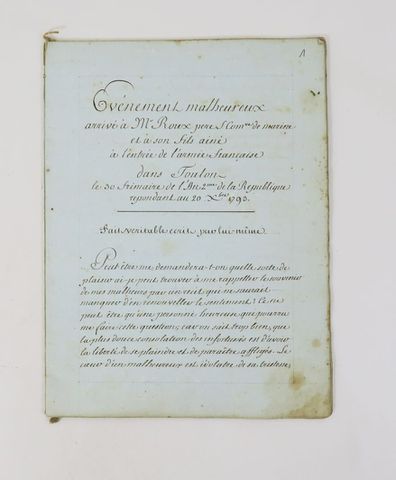 1
Evénement malheureux
arrivé à Mr. Roux pere S. Comre. de marine
et à son fils ainé
à l'entrée de l'armée française
dans Toulon
le 30 frimaire de l'An 2me. de la Republique
repondant au 20 Xbre 1793.
Fait veritable ecrit par lui même
Peut être me demandera-t-on quelle sorte de
plaisir ai-je pent trouver à me rappeller le souvenir
de mes malheurs par un recit qui ne saurait
manquer d'en renouveller le sentiment? Ce ne
peut être qu'une personne heureuse que pourra
me faire cette question; car on sait trop bien, que
la plus douce consolation des infortunés est d'avoir
la liberté de se plaindre et de paraître affligés. Le
cœur d'un malheureux est idolatre de sa tristesse,